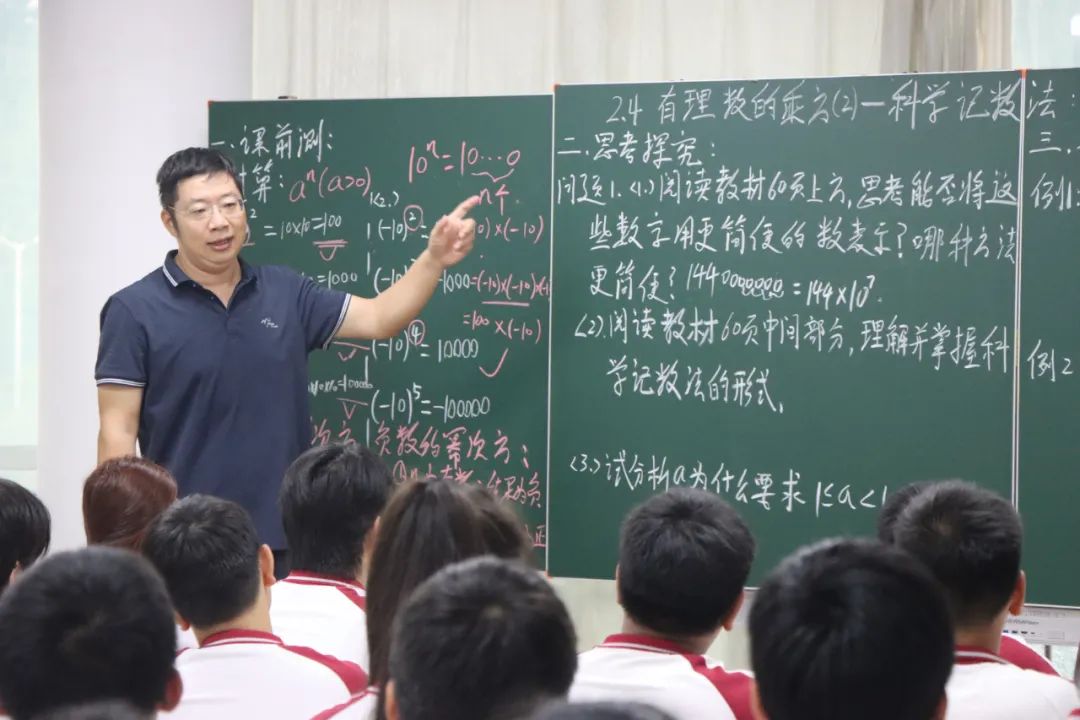 一、课前测:
计算: aⁿ(a>0)
10ⁿ=10…0
n个
(2.)
²=10×10=100
(-10)²=
)×(-10)
=1000
-1000=(-10)×(-10)×(-1
=100×(-10)
(-10)⁴=10000
(-10)⁵=-100000
次方 负数的幂次方:
2.4 有理数的乘方(2)—科学记数法:
二、思考探究:
问题1.(1)阅读教材60页上方,思考能否将这
些数字用更简便的数表示?哪种方法
更简便?
=144×10⁷.
(2).阅读教材60页中间部分,理解并掌握科
学记数法的形式.
(3.)试分析a为什么要求1≤a<1
三、
例1:
例2